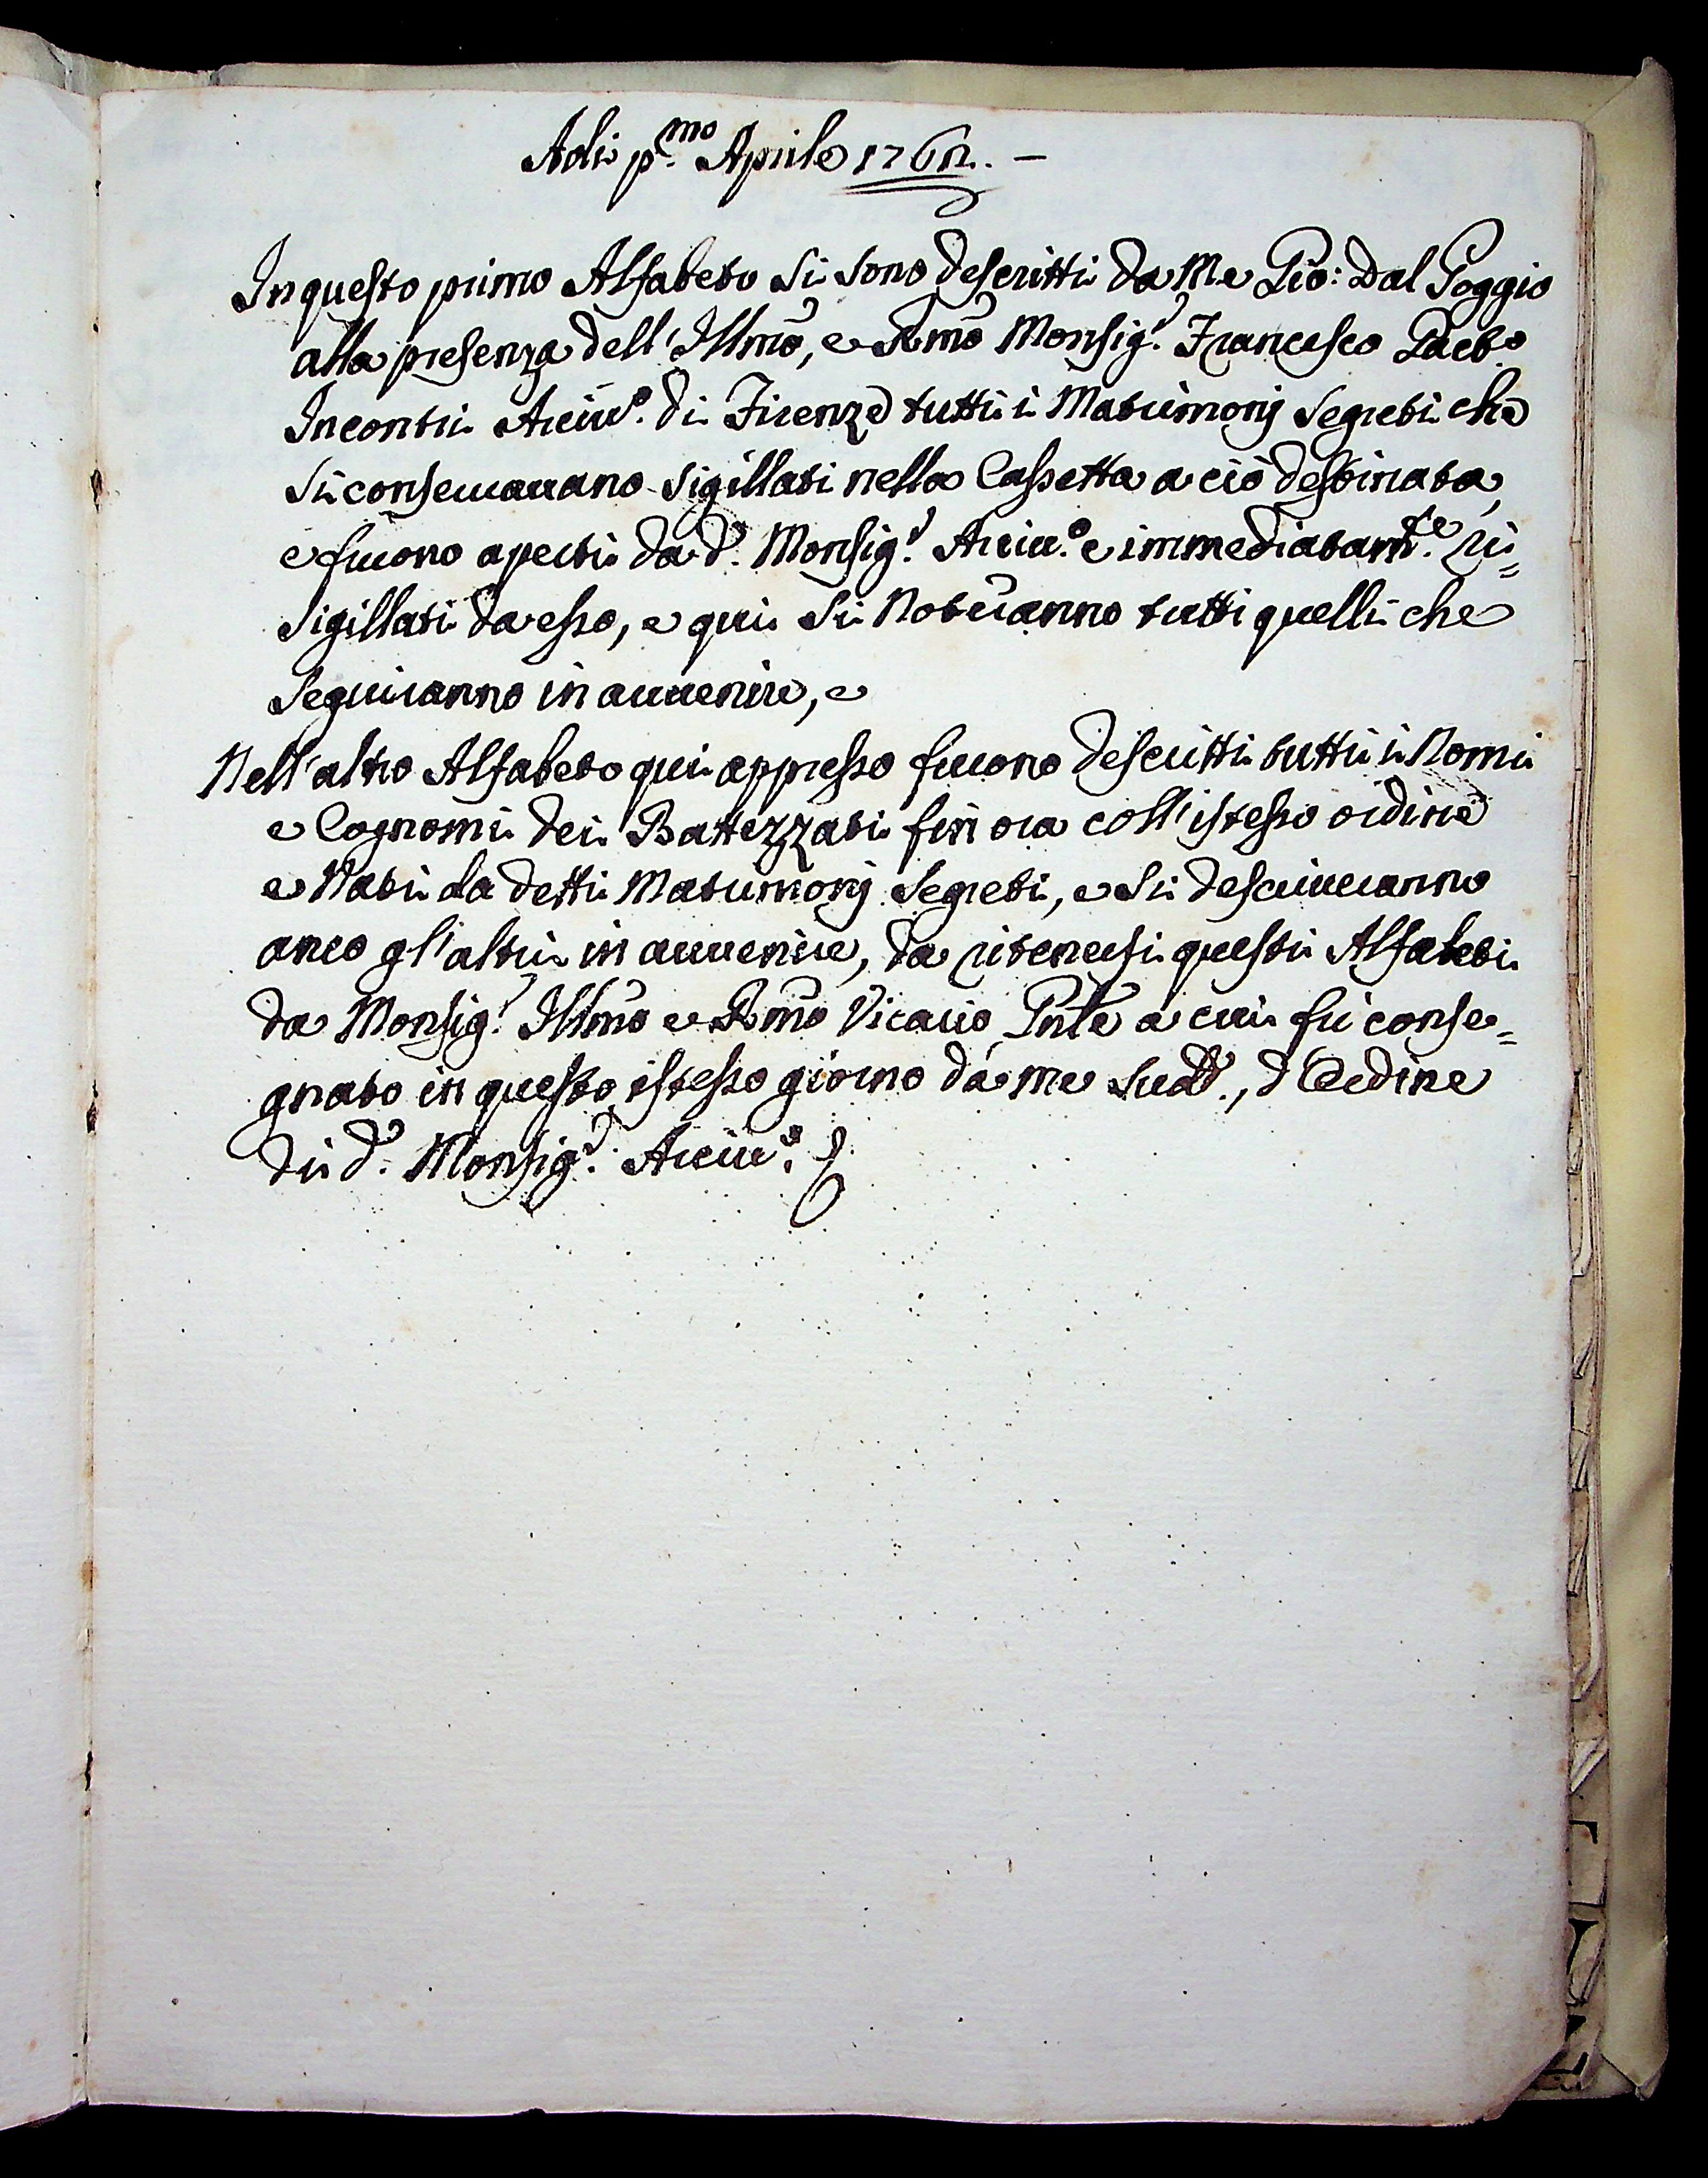 Adi p.mo Aprile 1762. –
In questo primo Alfabeto si sono descritti da Me Gio: Dal Poggio
alla presenza dell'Illmo, e Rmo Monsig.r Francesco Gaet.o
Incontri Arciv.o di Firenze tutti i Matrimonj Segreti che
si conservavano sigillati nella Cassetta a ciò destinata,
e furono aperti da d.o Monsig.r Arciv.o e immediatam.te ri=
sigillati da esso, e qui si Noteranno tutti quelli che
seguiranno in avvenire, e
Nell'altro Alfabeto qui appresso furono descritti tutti i Nomi
e Cognomi dei Battezzati fin ora coll'istesso ordine
e Nati da detti Matrimonj Segreti, e si descriveranno
anco gl'altri in avvenire, da ritenersi questi Alfabeti
da Monsig.r Illmo e Rmo Vicario Pnte a cui fù conse=
gnato in questo istesso giorno dà me Sudd.o, d'Ordine
di d.o Monsig.r Arciv.o